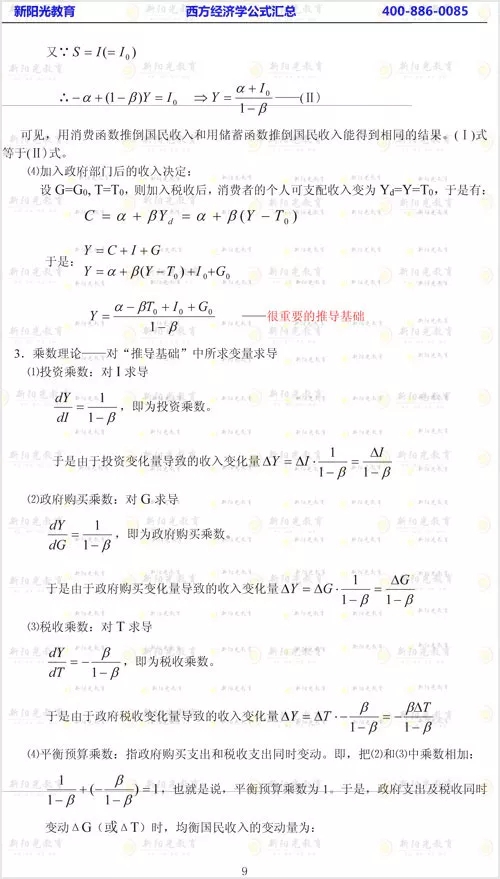 新阳光教育 西方经济学公式汇总 400-886-0085
又∵ S = I(= I₀)
∴ −α + (1−β)Y = I₀ ⇒ Y = (α + I₀)/(1−β) ——(Ⅱ)
可见，用消费函数推倒国民收入和用储蓄函数推倒国民收入能得到相同的结果。(Ⅰ)式
等于(Ⅱ)式。
⑷加入政府部门后的收入决定：
设 G=G₀, T=T₀，则加入税收后，消费者的个人可支配收入变为 Yd=Y=T₀，于是有：
C = α + βYd = α + β(Y − T₀)
于是：
Y = C + I + G
Y = α + β(Y − T₀) + I₀ + G₀
Y = (α − βT₀ + I₀ + G₀)/(1−β) ——很重要的推导基础
3．乘数理论——对“推导基础”中所求变量求导
⑴投资乘数：对 I 求导
dY/dI = 1/(1−β)，即为投资乘数。
于是由于投资变化量导致的收入变化量 ΔY = ΔI · 1/(1−β) = ΔI/(1−β)
⑵政府购买乘数：对 G 求导
dY/dG = 1/(1−β)，即为政府购买乘数。
于是由于政府购买变化量导致的收入变化量 ΔY = ΔG · 1/(1−β) = ΔG/(1−β)
⑶税收乘数：对 T 求导
dY/dT = −β/(1−β)，即为税收乘数。
于是由于政府税收变化量导致的收入变化量 ΔY = ΔT · −β/(1−β) = −βΔT/(1−β)
⑷平衡预算乘数：指政府购买支出和税收支出同时变动。即，把⑵和⑶中乘数相加：
1/(1−β) + (−β/(1−β)) = 1，也就是说，平衡预算乘数为 1。于是，政府支出及税收同时
变动 ΔG（或 ΔT）时，均衡国民收入的变动量为：
9